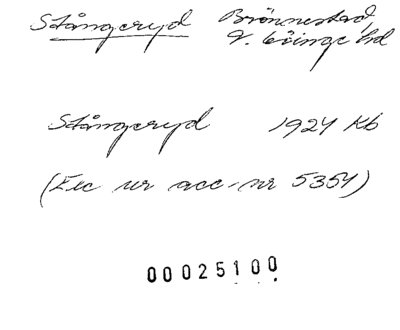 Stångeryd Brönnestad,
V. Göinge hd
Stångeryd 1924 Kb
(Exc ur acc.nr 5354)
00025100